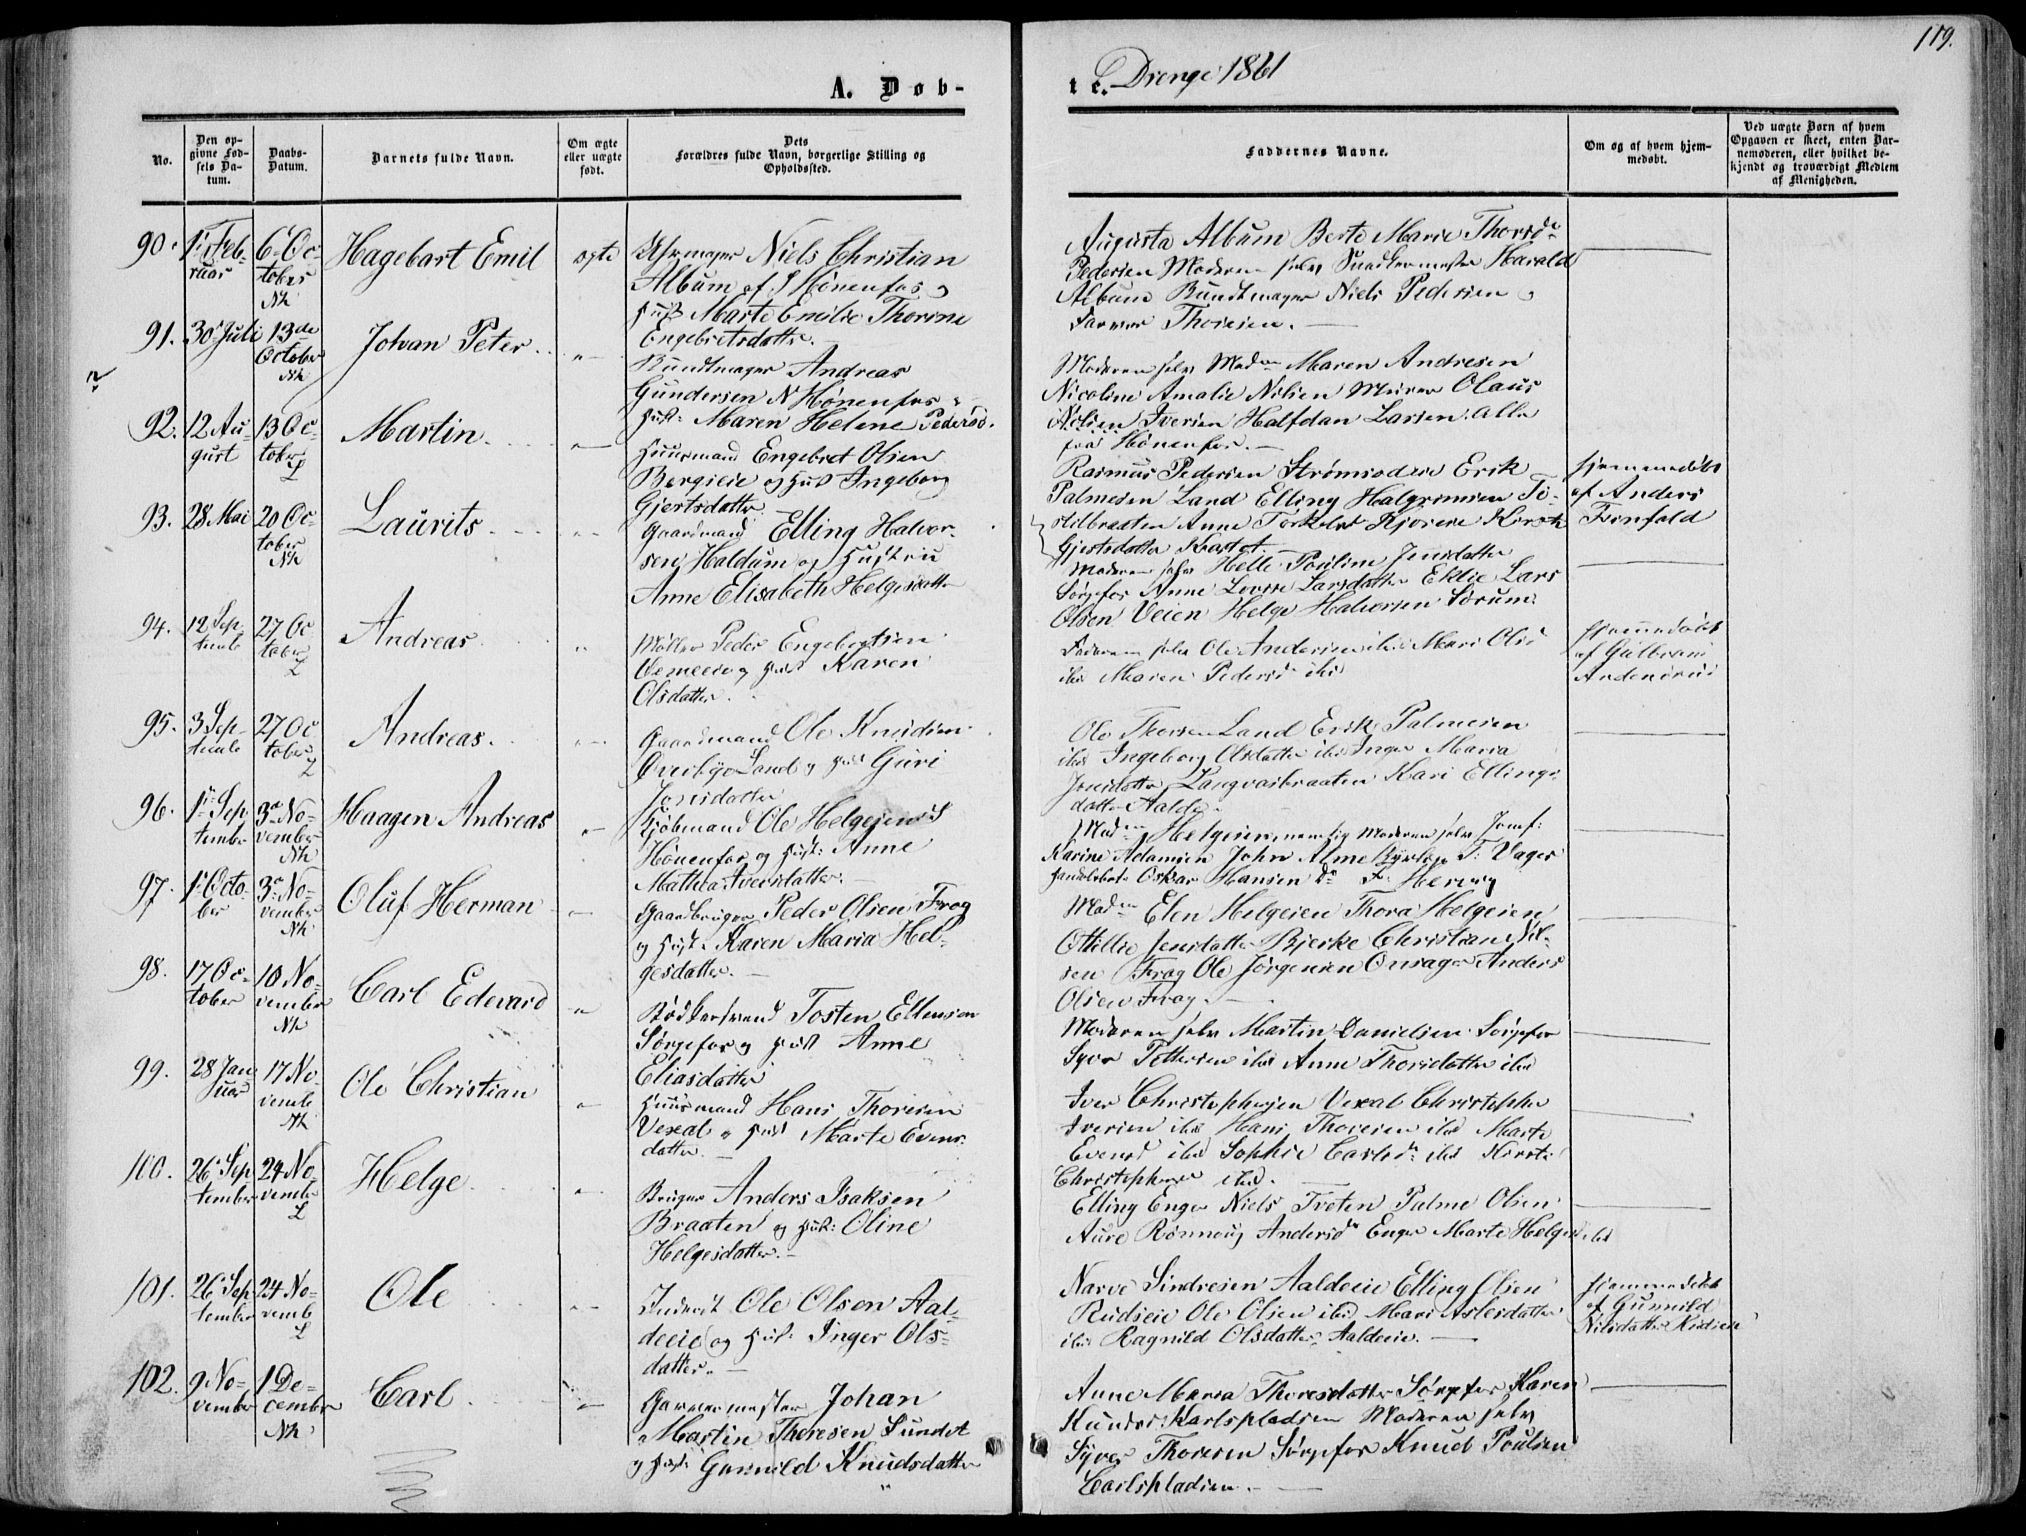 119.
A. Døb-
te. Drenge 1861
No.
Den op-
givne Fød-
sels Da-
tum.
Daabs-
Datum.
Barnets fulde Navn.
Om ægte
eller uægte
født.
Dets
Forældres fulde Navn, borgerlige Stilling og
Opholdssted.
Faddernes Navne.
Om og af hvem hjem-
medøbt.
Ved uægte Børn af hvem
Opgaven er skeet, enten Bar-
nemoderen, eller hvilket be-
kjendt og troværdigt Medlem
af Menigheden.
90.
1 Feb-
ruar
6 Oc-
tober
Nh
Hagebart Emil
ægte
Niels Christian
Album af S Hønenfos og
Hust Marte Emilie Thorine
Engebretsdatter.
Augusta Album Berte Marie Thorsd.
Pedersen Moderen selv Snedkermester Harald
Album Bundtmager Niels Pedersen
Thoresen.
91.
30 Juli
13de
October
Nh
Johan Peter
Bundtmager Andreas
Gundersen N Hønenfos og
Hust: Maren Helene Pedersd.
Moderen selv Madm Maren Andresen
Nicoline Amalie Nilsen Murer Olaus
Iversen Halfdan Larsen alle
fra Hønenfos.
92.
12 Au-
gust
13 Oc-
tober
L
Martin
Huusmand Engebret Olsen
Bergseie og Hust Ingeborg
Gjertsdatter
Rasmus Pedersen Strømsodden Erik
Palmesen Land Elling Halgrimsen
Anne
Gjertsdatter
Hjemmedøbt
af Anders
93.
28 Mai
20 Oc-
tober
Nh
Laurits
Gaardmand Elling Halvor-
sen Haldum og Hustru
Anne Elisabeth Helgesdatter
Moderen selv Helle Pouline Jensdatter
Sørgefos Anne Lovise Larsdatter Eklie Lars
Olsen Veien Helge Halvorsen Sørum.
94.
12 Sep
temb
27 Oc
tober
L
Andreas
Møller Peder Engebretsen
og Hust Karen
Olsdatter.
Faderen selv Ole Andersen ibid Mari Olsd
ibid Maren Pedersd ibid
Hjemmedøbt
af Gulbrand
95.
3 Sep-
temb
27 Oc
tober
L
Andreas.
Gaardmand Ole Knudsen
Overbye Land og Hust Guri
Jonsdatter
Ole Thorsen Land Erik Palmesen
ibid Ingeborg Olsdatter ibid Inger Maria
Jonsdatter Langvasbraaten Kari Ellings-
datter Aalde
96.
1 Sep
tember
3 No-
vember
Nh
Haagen Andreas
Kjøbmand Ole Helgesen S
Hønenfos og Hust: Anne
Mathea Iversdatter.
Madm Helgesen nemlig Moderen selv Jomf:
Karine Adamsen John Alme
Oskar Hansen
97.
1 Octo-
ber
3 No-
vember
Nh
Oluf Herman
Gaardbruger Peder Olsen Frog
og Hust. Karen Maria Hel-
gesdatter.
Madm Elen Helgesen Thora Helgesen
Ottilie Jensdatter Bjerke Christian Nil-
sen Frog Ole Jørgensen Onsager Anders
Olsen Frog.
98.
17 Oc-
tober
10 No-
vember
Nh
Carl Edevard
Tosten Ellensen
Sørgefos og Hust Anne
Eliasdatter
Moderen selv Martin Danielsen Sørgefos
Syver Pettersen ibid Anne Thorsdatter ibid
99.
28 Jan
uar
17 No-
vemb
Nh
Ole Christian
Huusmand Hans Thoresen
Vexal og Hust Marte Evens-
datter.
Iver Christophersen Vexal Christopher
Iversen ibid Hans Thoresen ibid Marte
Evensd ibid Sophie Carlsd ibid Kirsti
Christophersd ibid.
100.
26 Sep
tember
24 No-
vemb
L
Helge
Bruger Anders Isaksen
Braaten og Hust: Oline
Helgesdatter.
Elling Enger Niels Tveten Palme Olsen
Aure Rønnoug Andersd Enger Marte Helgesd ibid
101.
26 Sep
tember
24 No-
vemb
L
Ole
Inderst Ole Olsen Aal-
deeie og Hust: Inger Ols-
datter.
Narve Sindresen Aaldeeie Elling Olsen
Rudseie Ole Olsen ibid Mari Aslesdatter
ibid Ragnild Olsdatter Aaldeeie.
Hjemmedøbt
af Gunnild
Nilsdatter
102.
9 No-
vember
1 De-
cember
Nh
Carl
Garvermester Johan
Martin Theresen Sundet
og Hust: Gunnild Knudsdatter
Anne Maria Thoresdatter Sørgefos Karen
Karlspladsen Moderen selv
Syver Thoresen Sørgefos Knud Poulsen
Carlspladsen.